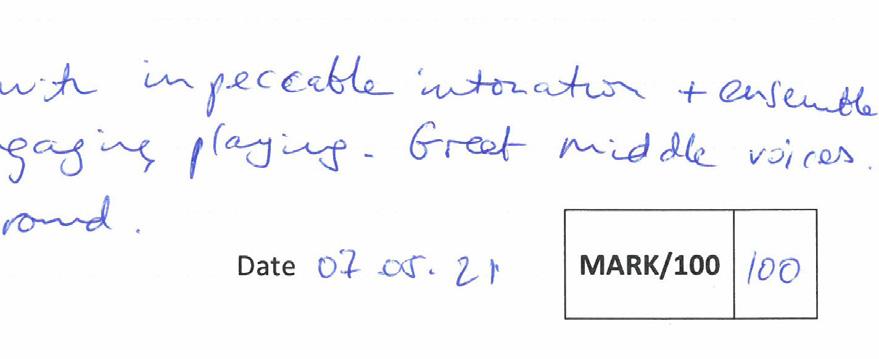 with impeccable intonation + ensemble
gaging playing. Great middle voices.
round.
Date 07.05.21
MARK/100 100